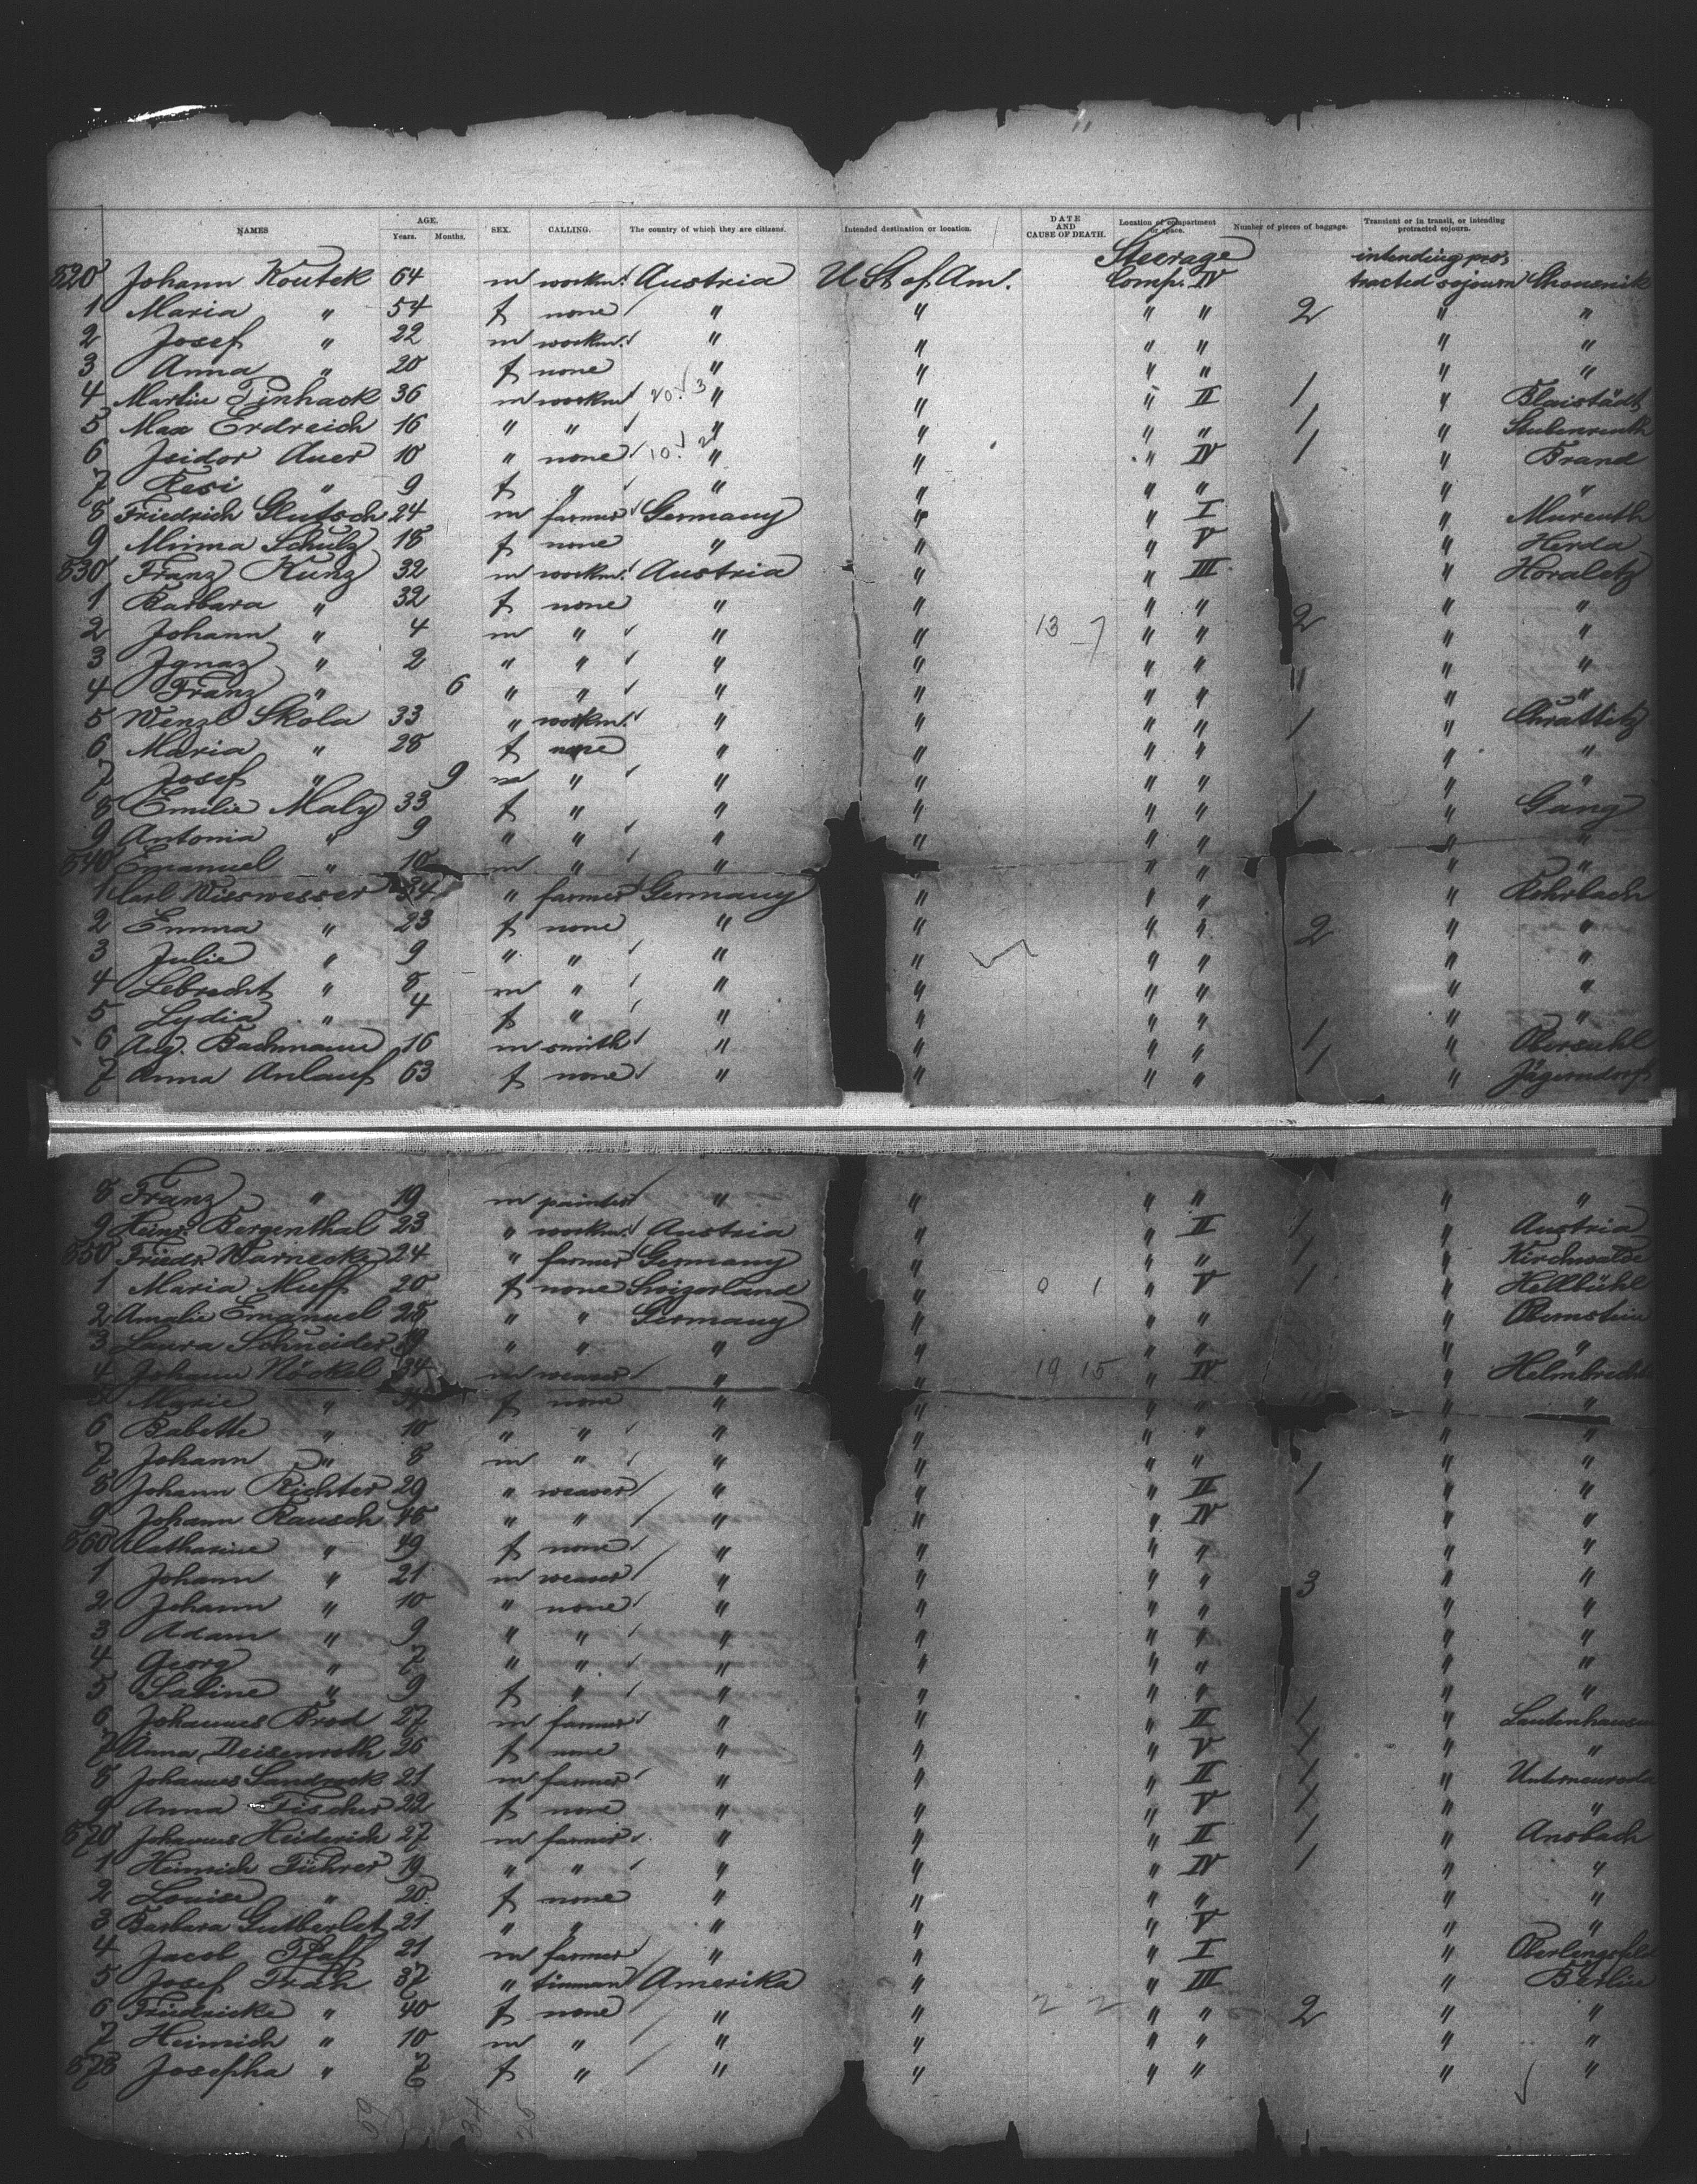 NAMES AGE. Years. Months. SEX. CALLING. The country of which they are citizens. Intended destination or location. DATE AND CAUSE OF DEATH. Location of compartment or space. Number of pieces of baggage. Transient or in transit, or intending protracted sojourn.
Steerage intending pro-
820 Johann Koutek 64 m workm. Austria U St of Am. Comp. IV tracted sojourn
1 Maria " 54 f none " " " " 2 " "
2 Josef " 22 m workm. " " " " " "
3 Anna " 20 f none " " " " " "
4 Martin 36 m workm. 20 3 " " " II 1 " Blaistädt
5 Max Erdreich 16 " " " " " " 1 "
6 Isidor Auer 10 " none 10 2 " " " IV 1 " Brand
7 Resi " 9 f " " " " " " "
8 Friedrich Glutsch 24 m farmer Germany " " I "
9 Minna Schulz 18 f none " " " V " Herda
830 Franz Kunz 32 m workm. Austria " " III " Horaletz
1 Barbara " 32 f none " " " " " "
2 Johann " 4 m " " " 13 7 " " 2 " "
3 Ignaz " 2 " " " " " " " "
4 Franz " 6 " " " " " " " "
5 Wenzl Skola 33 " workm. " " " " 1 "
6 Maria " 28 f none " " " " " "
7 Josef " 9 m " " " " " " "
8 Emilie Maly 33 f " " " " " 1 " Gäng
9 Antonia " 9 " " " " " " " "
840 Emanuel " 10 m " " " " " " "
1 Carl Wieswesser 34 " farmer Germany " " " " Rohrbach
2 Emma " 23 f none " " " " 2 " "
3 Julie " 9 " " " " " " " "
4 Lebrecht " 8 m " " " " " " "
5 Lydia " 4 f " " " " " " "
6 Aug. Bachmann 16 m smith " " " " 1 " Obersuhl
7 Anna Anlauf 63 f none " " " " 1 " Jägerndorf
8 Franz " 19 m painter " " " " " "
9 Heinr. Bergenthal 23 " workm. Austria " II 1 " Austria
850 Friedr. Warnecke 24 " farmer Germany " " " 1 " Kirchwalde
1 Maria Muff 20 f none Swizerland " 0 1 " V 1 " Hellbühl
2 Amalie Emanuel 28 " " Germany " " " " Obernstein
3 Laura Schneider 19 " " " " " " " "
4 Johann Nöckel 34 m weaver " " 19 15 " IV " Helmbrechts
5 Marie " 34 f none " " " " " "
6 Babette " 10 " " " " " " " "
7 Johann " 8 m " " " " " " "
8 Johann Richter 29 " weaver " " " II 1 " "
9 Johann Rausch 46 " " " " " IV " "
860 Catharine " 49 f none " " " " " "
1 Johann " 21 m weaver " " " " 3 " "
2 Johann " 10 " none " " " " " "
3 Adam " 9 " " " " " " " "
4 Georg " 7 " " " " " " " "
5 Sabine " 9 f " " " " " " "
6 Johannes Brod 27 m farmer " " " II 1 " Lautenhausen
7 Anna Deisenroth 26 f none " " " V 1 " "
8 Johannes Sandrock 21 m farmer " " " II 1 " Unterneuroda
9 Anna Fischer 22 f none " " " V 1 " "
870 Johannes Heiderich 27 m farmer " " " II 1 " Ansbach
1 Heinrich Führer 19 " " " " " IV 1 " "
2 Louise " 20 f none " " " " " "
3 Barbara Gutberlet 21 " " " " " V " "
4 Jacob Pfaff 21 m farmer " " " I "
5 Josef Frah 37 " tinman Amerika " " III " Berlin
6 Friedricke " 40 f none " " 2 2 " " 2 " "
7 Heinrich " 10 m " " " " " " "
878 Josepha " 7 f " " " " " " "
59 34 26